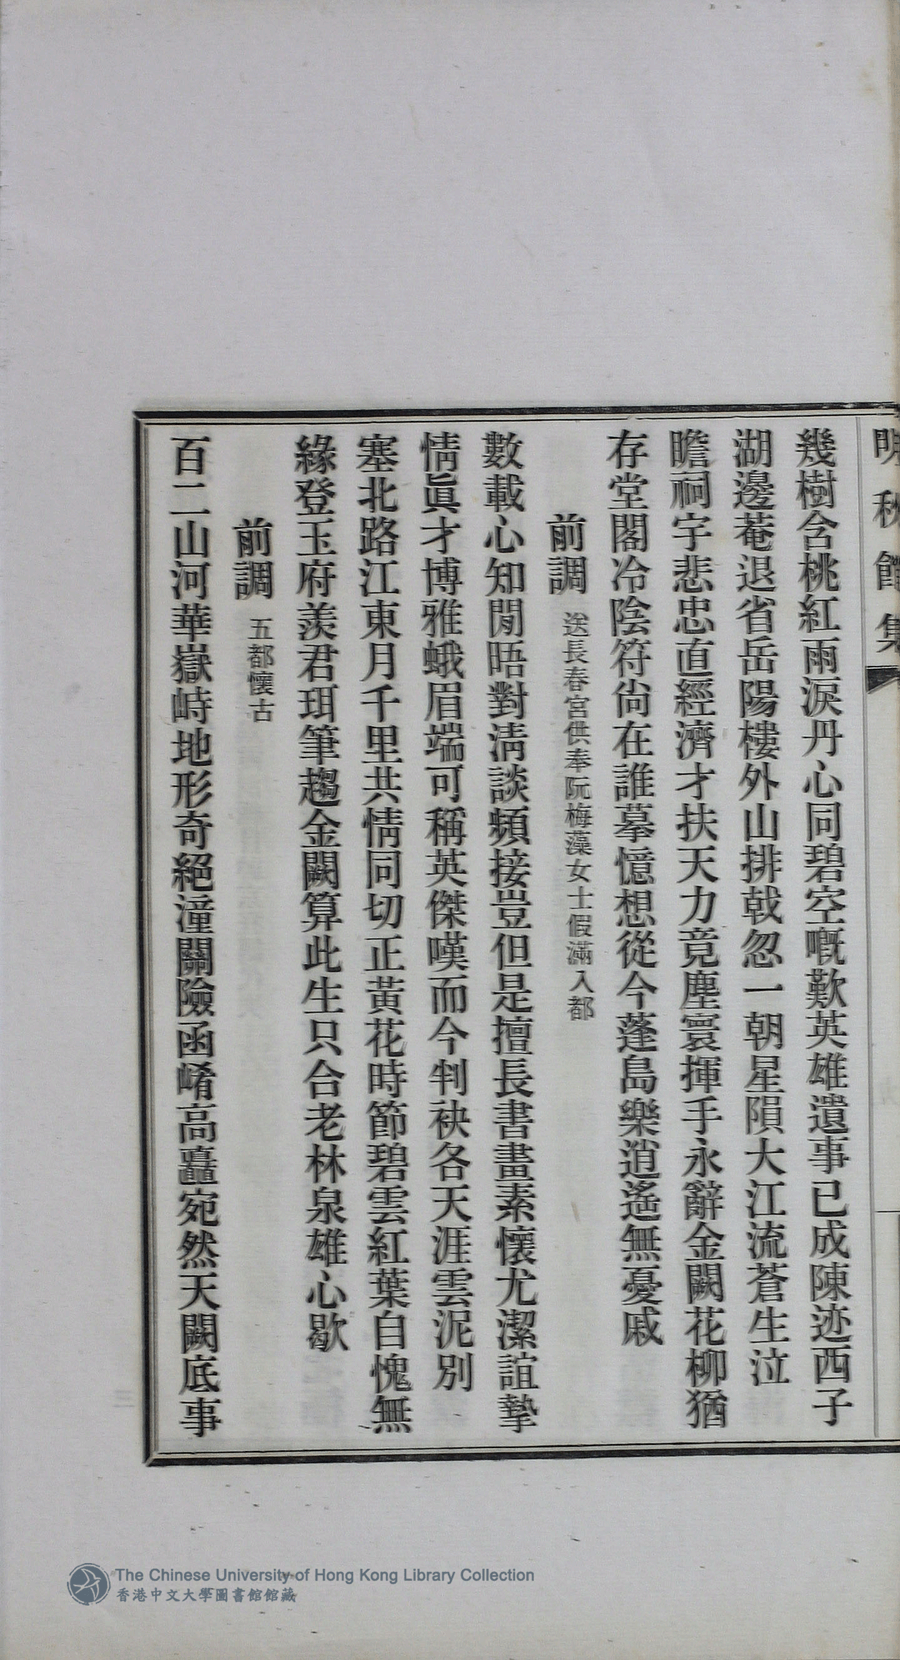 秋館集
幾樹含桃紅雨淚丹心同碧空嘅歎英雄遺事已成陳迹西子
湖邊菴退省岳陽樓外山排戟忽一朝星隕大江流蒼生泣
瞻祠宇悲忠直經濟才扶天力竟塵寰揮手永辭金闕花柳猶
存堂閣冷陰符尙在誰摹憶想從今蓬島樂逍遙無憂戚
前調 送長春宮供奉阮梅藻女士假滿入都
數載心知閒晤對淸談頻接豈但是擅長書畫素懷尤潔誼摯
情眞才博雅蛾眉端可稱英傑嘆而今判袂各天涯雲泥別
塞北路江東月千里共情同切正黃花時節碧雲紅葉自愧無
緣登玉府羨君珥筆趨金闕算此生只合老林泉雄心歇
前調 五都懷古
百二山河華嶽峙地形奇絕潼關險函崤高矗宛然天闕底事
The Chinese University of Hong Kong Library Collection
香港中文大學圖書館館藏